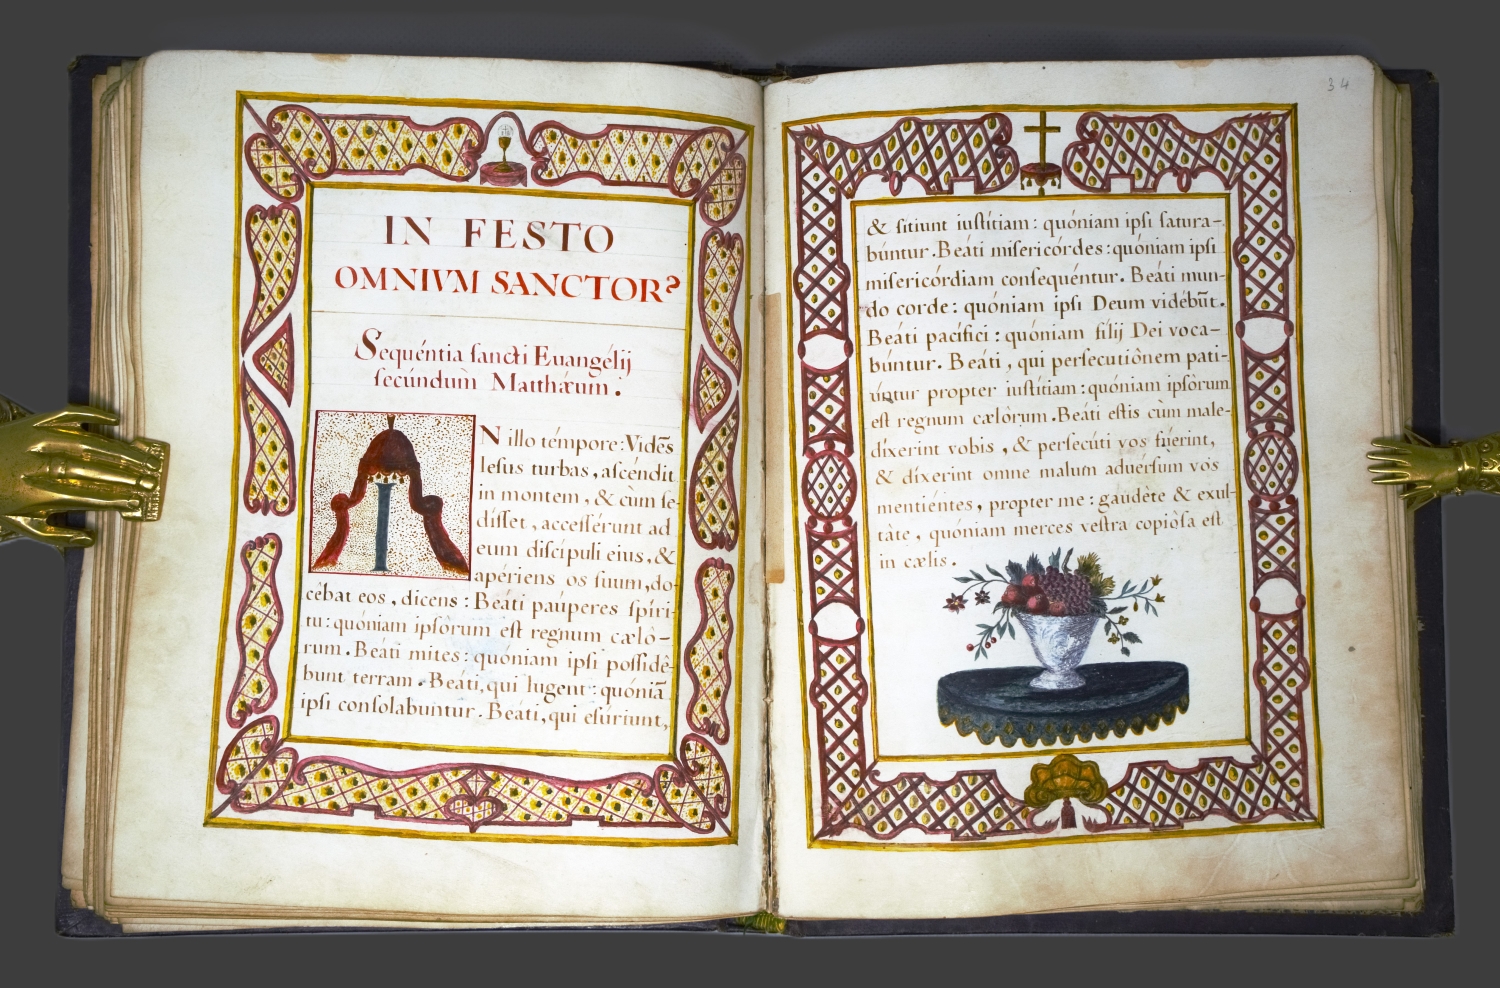 IN FESTO
OMNIVM SANCTORꝜ
Sequéntia sancti Euangélij
secúndum Matthæum.
N illo témpore: Vidẽs
Iesus turbas, ascéndit
in montem, & cùm se-
dísset, accessérunt ad
eum discípuli eius, &
apériens os suum, do-
cêbat eos, dicens: Beáti páuperes spíri-
tu: quóniam ipsôrum est regnum cælô-
rum. Beáti mites: quóniam ipsi possidê-
bunt terram. Beáti, qui lugent: quóniã
ipsi consolabúntur. Beáti, qui esúriunt,
34
& sítiunt iustítiam: quóniam ipsi satura-
búntur. Beáti misericórdes: quóniam ipsi
misericórdiam consequéntur. Beáti mun-
do corde: quóniam ipsi Deum vidébũt.
Beáti pacífici: quóniam fílij Dei voca-
búntur. Beáti, qui persecutiônem pati-
úntur propter iustítiam: quóniam ipsôrum
est regnum cælôrum. Beáti estis cùm male-
díxerint vobis, & persecúti vos fúerint,
& díxerint omne malum aduérsum vos
mentiéntes, propter me: gaudête & exul-
tâte, quóniam merces vestra copiôsa est
in cælis.